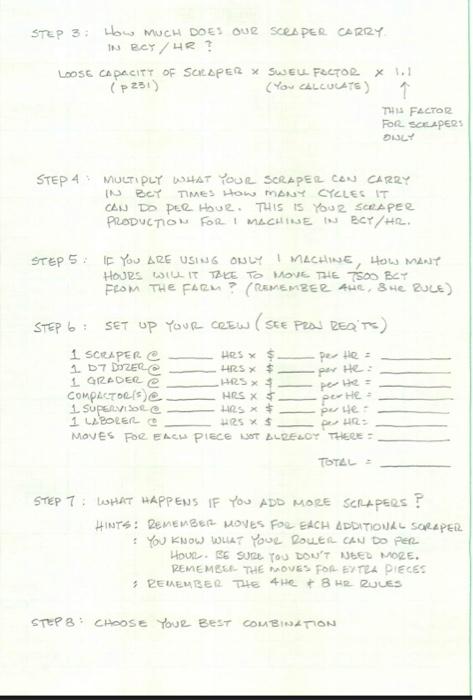 STEP 3: HOW MUCH DOES OUR SCRAPER CARRY
IN BCY/HR ?
LOOSE CAPACITY OF SCRAPER x SWELL FACTOR x 1.1
(p 231) (YOU CALCULATE) ↑
THIS FACTOR
FOR SCRAPERS
ONLY
STEP 4: MULTIPLY WHAT YOUR SCRAPER CAN CARRY
IN BCY TIMES HOW MANY CYCLES IT
CAN DO PER HOUR. THIS IS YOUR SCRAPER
PRODUCTION FOR 1 MACHINE IN BCY/HR.
STEP 5: IF YOU ARE USING ONLY 1 MACHINE, HOW MANY
HOURS WILL IT TAKE TO MOVE THE 7500 BCY
FROM THE FARM? (REMEMBER 4HR, 8HR RULE)
STEP 6: SET UP YOUR CREW (SEE PROJ REQ'TS)
1 SCRAPER @ ____ HRS x $____ per HR = ____
1 D7 DOZER @ ____ HRS x $____ per HR: ____
1 GRADER @ ____ HRS x $____ per HR = ____
COMPACTOR(S) @ ____ HRS x $____ per HR = ____
1 SUPERVISOR @ ____ HRS x $____ per HR: ____
1 LABORER @ ____ HRS x $____ per HR: ____
MOVES FOR EACH PIECE NOT ALREADY THERE = ____
TOTAL = ____
STEP 7: WHAT HAPPENS IF YOU ADD MORE SCRAPERS?
HINTS: REMEMBER MOVES FOR EACH ADDITIONAL SCRAPER
: YOU KNOW WHAT YOUR ROLLER CAN DO PER
HOUR. BE SURE YOU DON'T NEED MORE.
REMEMBER THE MOVES FOR EXTRA PIECES
: REMEMBER THE 4HR & 8 HR RULES
STEP 8: CHOOSE YOUR BEST COMBINATION